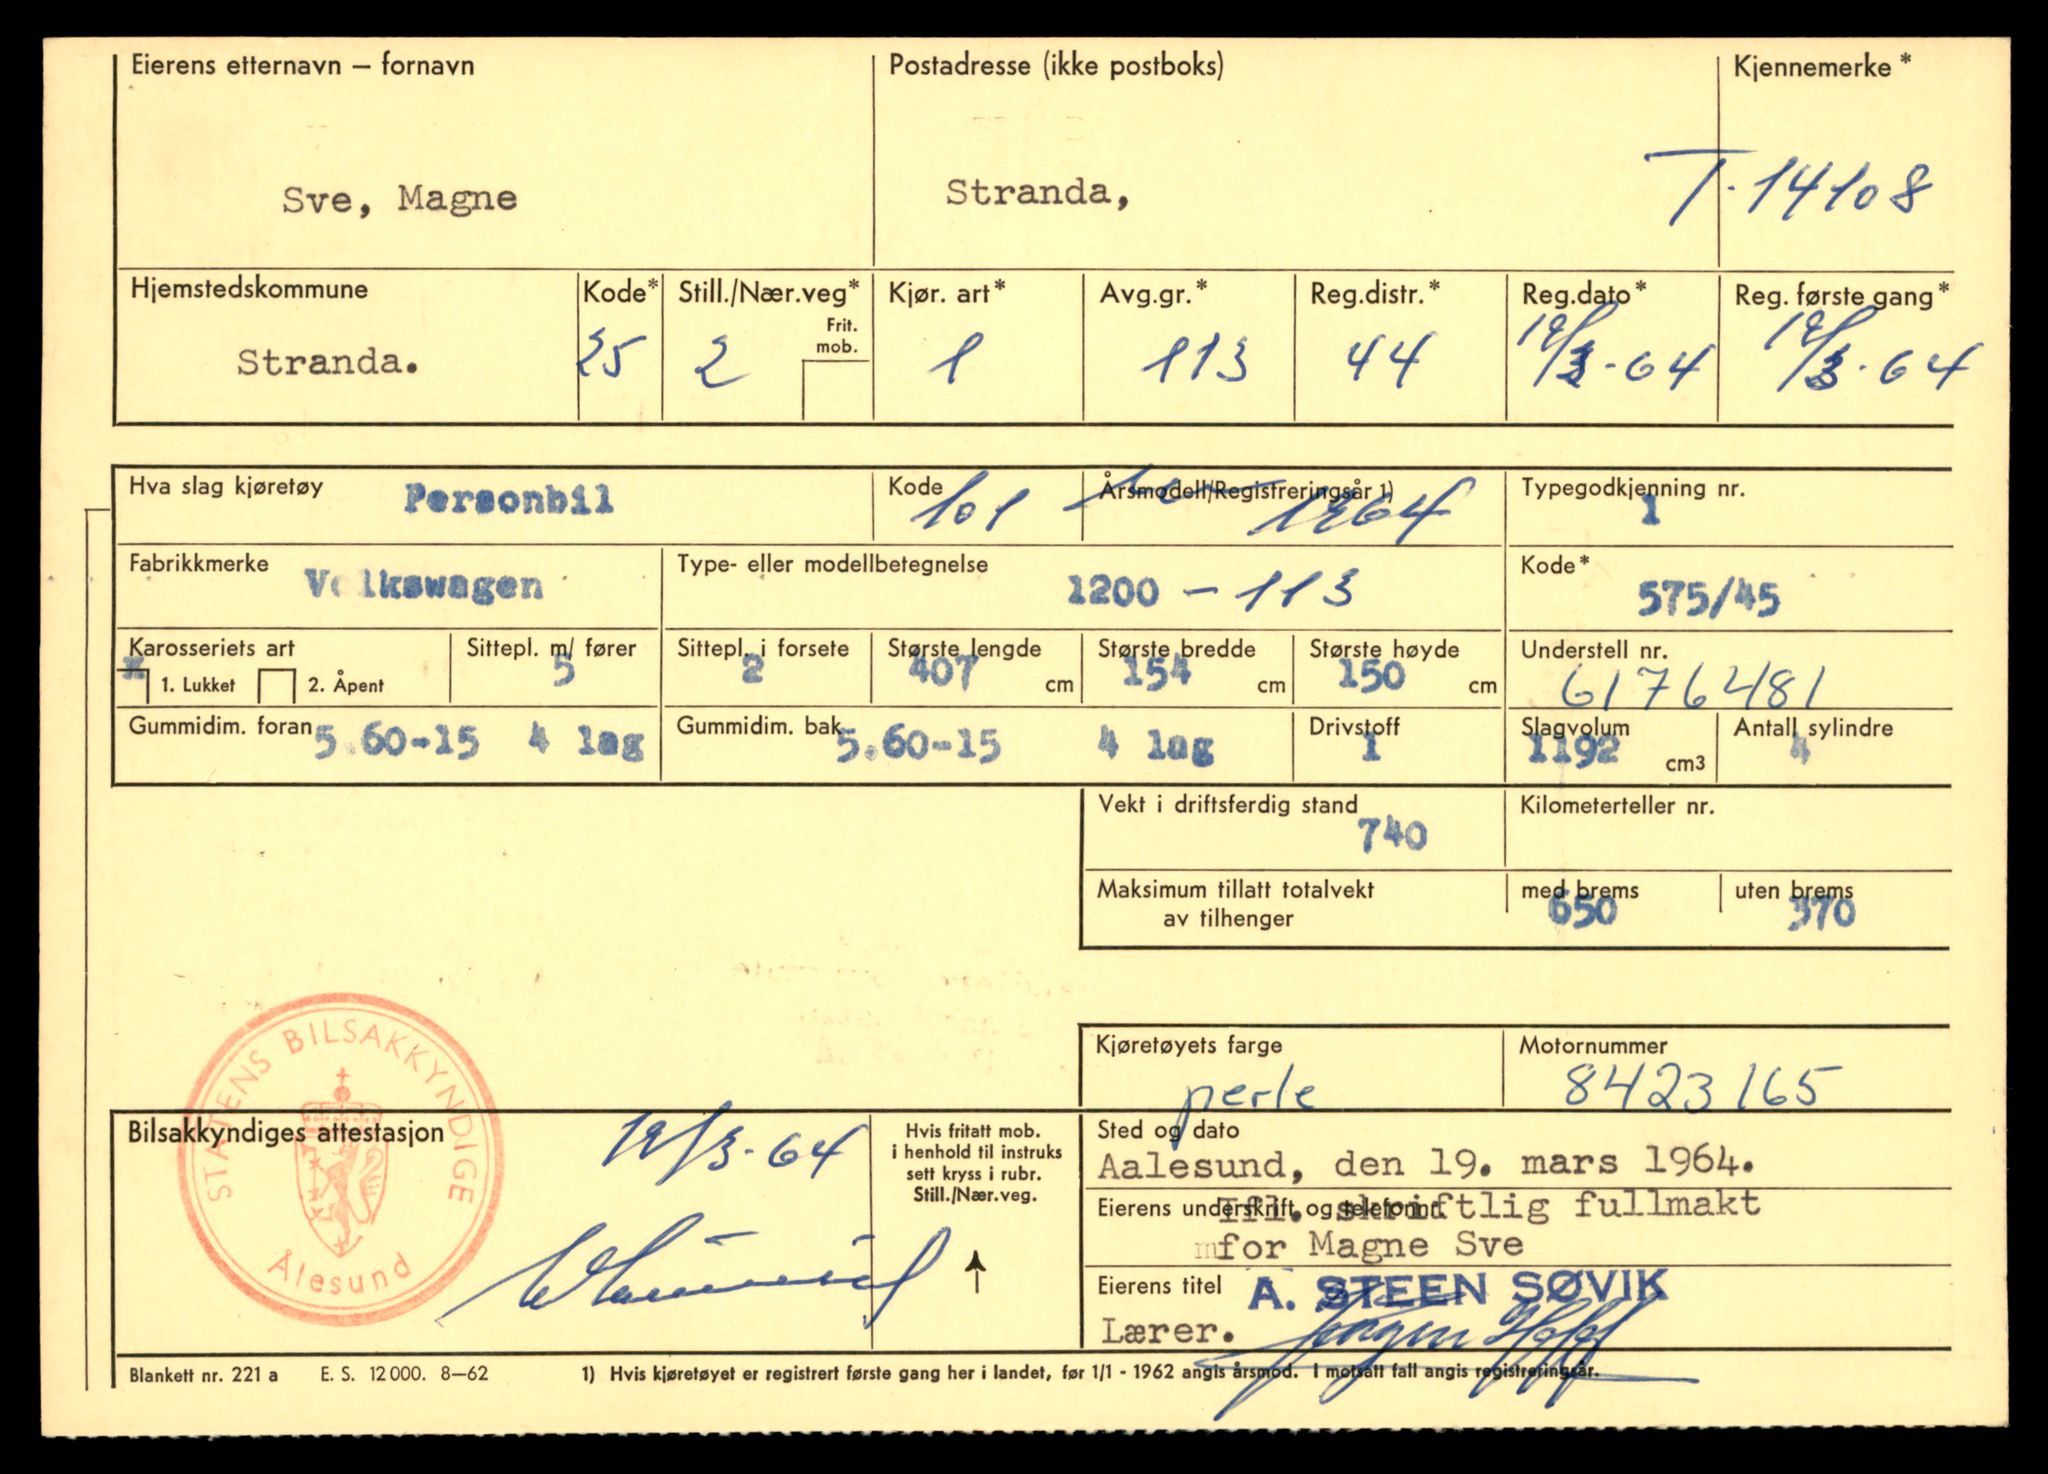 Eierens etternavn – fornavn Postadresse (ikke postboks) Kjennemerke *
Sve, Magne Stranda, T-14108
Hjemstedskommune Kode* Still./Nær.veg* Kjør. art* Avg.gr.* Reg.distr.* Reg.dato* Reg. første gang*
Frit.
mob.
Stranda. 25 2 1 113 44 19/3-64 19/3-64
Hva slag kjøretøy Personbil Kode 101 Årsmodell/Registreringsår 1) 1964 Typegodkjenning nr. 1
Fabrikkmerke Volkswagen Type- eller modellbetegnelse 1200 - 113 Kode* 575/45
Karosseriets art Sittepl. m/ fører Sittepl. i forsete Største lengde Største bredde Største høyde Understell nr.
x 1. Lukket 2. Åpent 5 2 407 cm 154 cm 150 cm 6176481
Gummidim. foran 5.60-15 4 lag Gummidim. bak 5.60-15 4 lag Drivstoff 1 Slagvolum 1192 cm3 Antall sylindre 4
Vekt i driftsferdig stand 740 Kilometerteller nr.
Maksimum tillatt totalvekt med brems uten brems
av tilhenger 650 370
STATENS BILSAKKYNDIGE
Ålesund
Kjøretøyets farge Motornummer
perle 8423165
Bilsakkyndiges attestasjon 19/3-64
Hvis fritatt mob.
i henhold til instruks
sett kryss i rubr.
Still./Nær.veg.
Sted og dato
Aalesund, den 19. mars 1964.
Eierens underskrift og telefonnr.
Ifl. skriftlig fullmakt
for Magne Sve
Eierens titel A. STEEN SØVIK
Lærer.
Blankett nr. 221 a E. S. 12 000. 8–62 1) Hvis kjøretøyet er registrert første gang her i landet, før 1/1 - 1962 angis årsmod. I motsatt fall angis registreringsår.